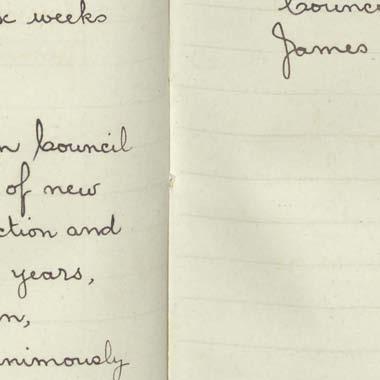 weeks
Council
of new
ction and
years,
n,
nimously
Counc
James